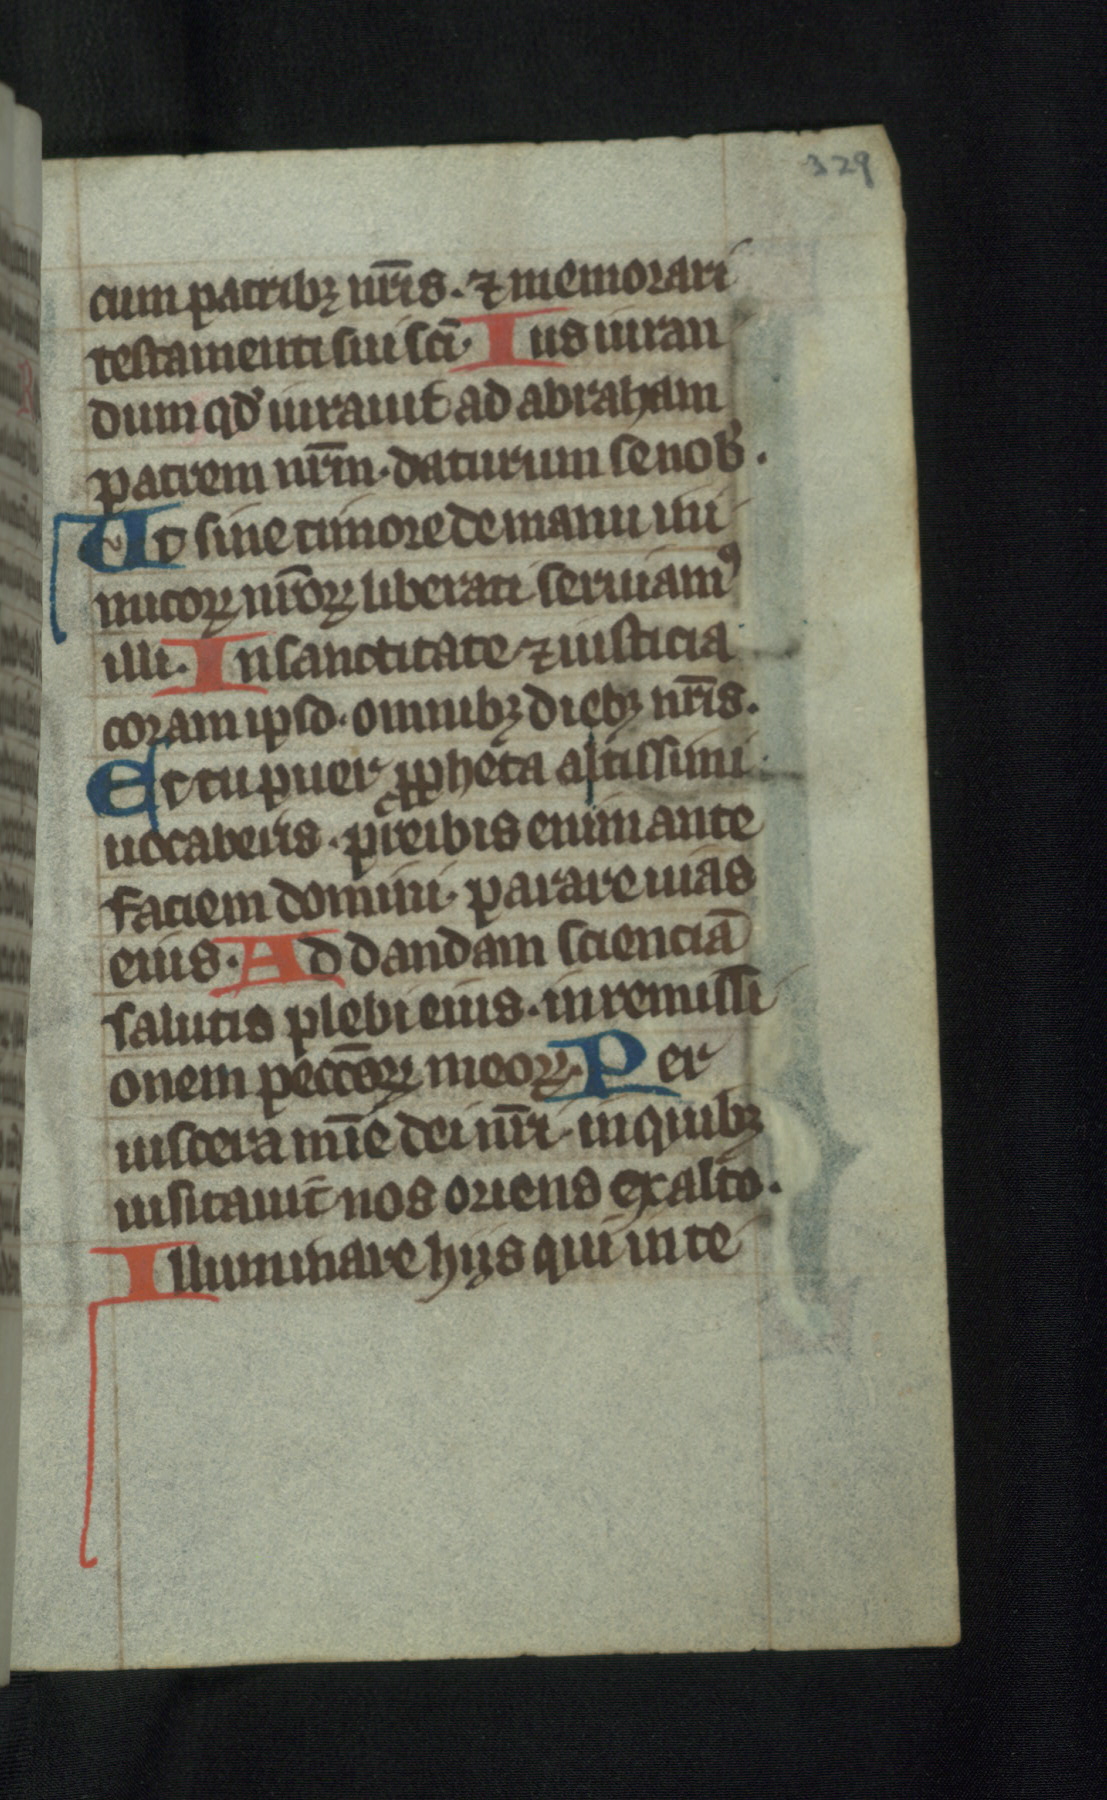 329
cum patribꝫ nr̄is. ⁊ memorari
testamenti sui sc̄i. Ius iuran
dum qđ iurauit ad abraham
patrem nr̄m. daturum se nob̄.
Ut sine timore de manu ini
micoꝝ nr̄oꝝ liberati seruiamꝰ
illi. In sanctitate ⁊ iusticia
coram ipso. omnibꝫ diebꝫ nr̄is.
Et tu puer ꝓpheta altissimi
uocaberis. p̄reibis enim ante
faciem domini. parare uias
eius. Ad dandam scienciā
salutis plebi eius. in remissi
onem pecc̄oꝝ meoꝝ. Per
uiscera mīe dei nr̄i. in quibꝫ
uisitauit nos oriens ex alto.
Illuminare hijs qui in te